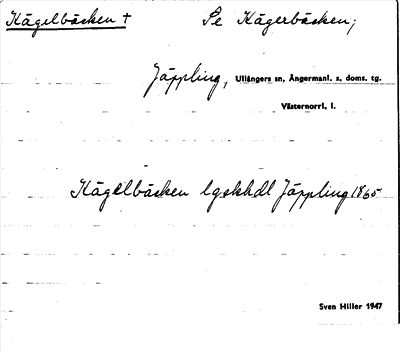 Kägelbäcken + Se Kägerbäcken;
Jäppling, Ullångers sn, Ångermanl. s. doms. tg.
Västernorrl. l.
Kägelbäcken lgskhdl Jäppling 1865
Sven Hiller 1947